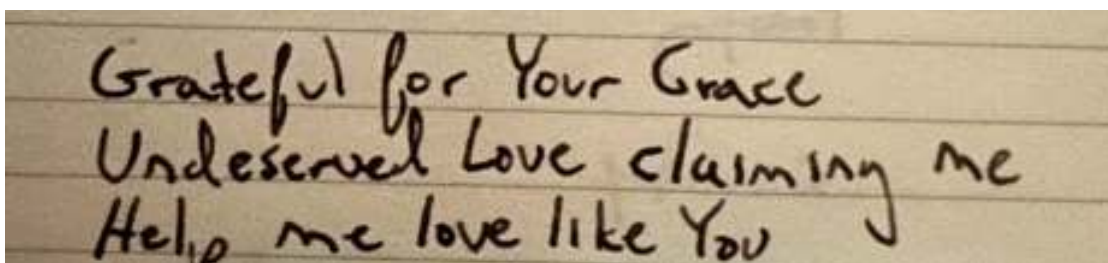 Grateful for Your Grace
Undeserved Love claiming me
Help me love like You